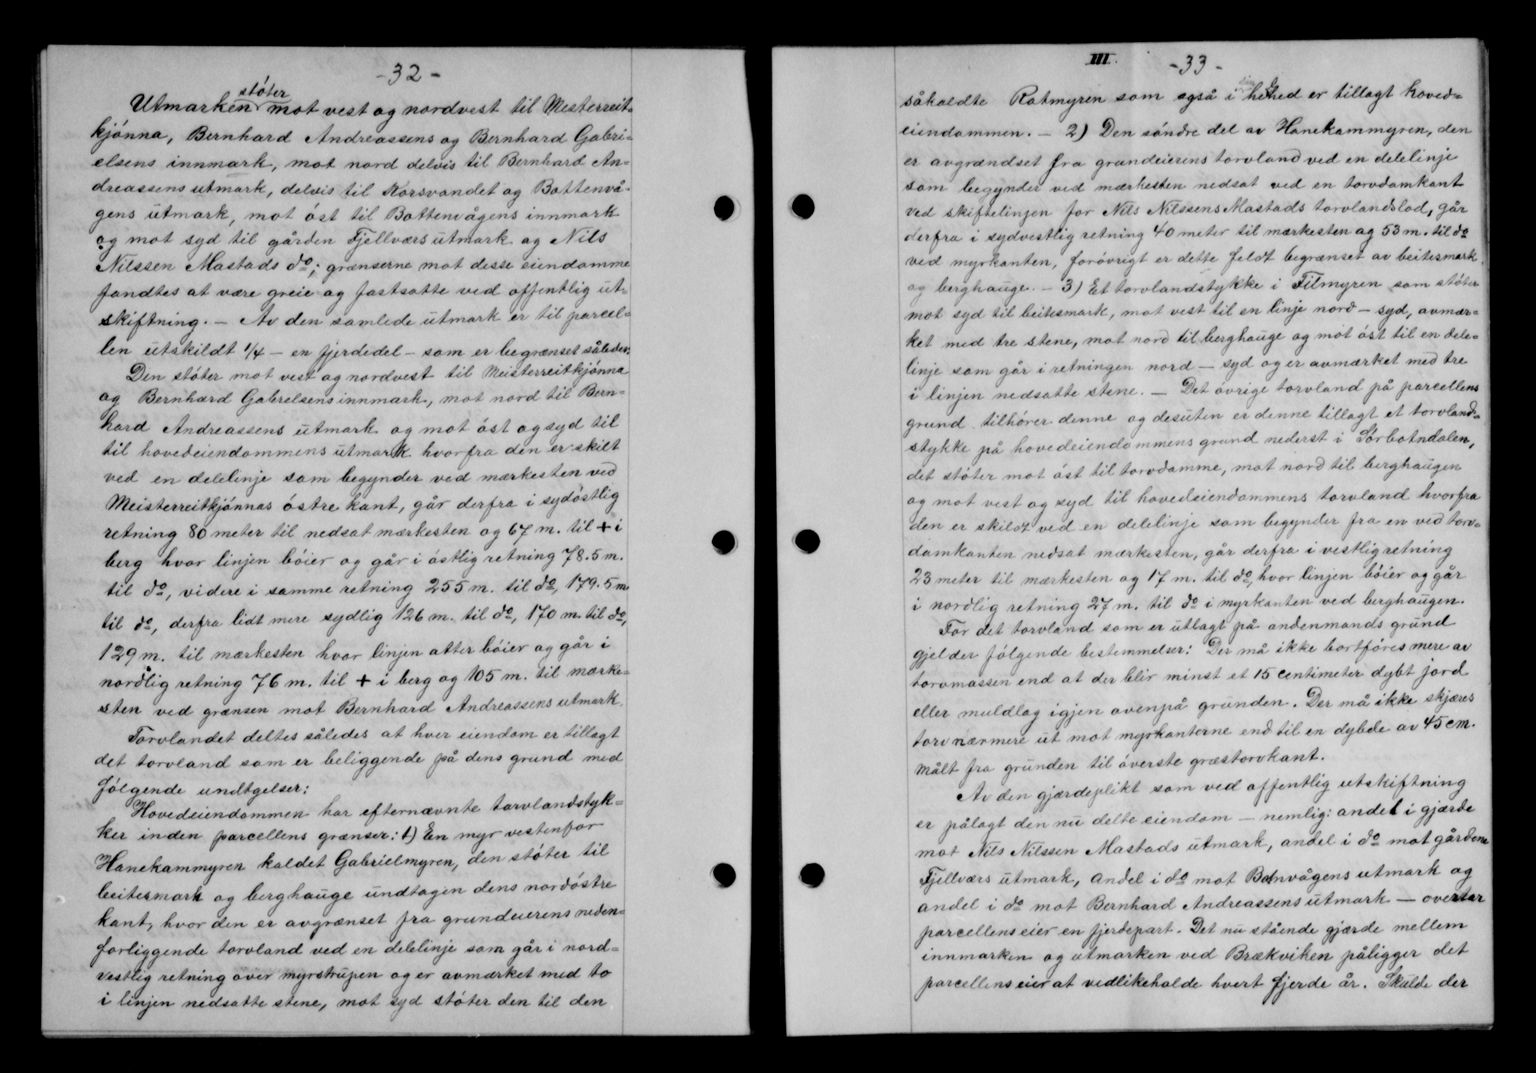 - 32 -
støter
Utmarken mot vest og nordvest til Mesterreit-
kjønna, Bernhard Andreassens og Bernhard Gabri-
elsens innmark, mot nord delvis til Bernhard An-
dreassens utmark, delvis til Korsvandet og Bottenvå-
gens utmark, mot øst til Bottenvågens innmark
og mot syd til gården Fjellværs utmark og Nils
Nilssen Mastads do; grænserne mot disse eiendomme
fandtes at være greie og fastsatte ved offentlig ut-
skiftning. - Av den samlede utmark er til parcel-
len utskildt 1/4 - en fjerdedel - som er begrænset således:
Den støter mot vest og nordvest til Meisterreitkjønna
og Bernhard Gabrelsens innmark, mot nord til Bern-
hard Andreassens utmark og mot øst og syd til
til hovedeiendommens utmark hvorfra den er skilt
ved en delelinje som begynder ved mærkesten ved
Meisterreitkjønnas østre kant, går derfra i sydøstlig
retning 80 meter til nedsat mærkesten og 67 m. til + i
berg hvor linjen bøier og går i østlig retning 78.5 m.
til do, videre i samme retning 255 m. til do, 179.5 m
til do, derfra lidt mere sydlig 126 m. til do, 170 m. til do,
129 m. til mærkesten hvor linjen atter bøier og går i
nordlig retning 76 m. til + i berg og 105 m. til mærke-
sten ved grænsen mot Bernhard Andreassens utmark.
Torvlandet deltes således at hver eiendom er tillagt
det torvland som er beliggende på dens grund med
følgende undtgelser:
Hovedeiendommen har efternævnte torvlandstyk-
ker inden parcellens grænser: 1) En myr vestenfor
Hanekammyren kaldet Gabrielmyren, den støter til
beitesmark og berghauge undtagen dens nordøstre
kant, hvor den er avgrænset fra grundeierens neden-
forliggende torvland ved en delelinje som går i nord-
vestlig retning over myrstrupen og er avmærket med to
i linjen nedsatte stene, mot syd støter den til den
III.
- 33 -
såkaldte Rotmyren som også i helhed er tillagt hoved-
eiendommen. - 2) Den søndre del av Hanekammyren, den
er avgrændset fra grundeierens torvland ved en delelinje
som begynder ved mærkesten nedsat ved en torvdamkant
ved skiftelinjen for Nils Nilssens Mastads torvlandslod, går
derfra i sydvestlig retning 40 meter til mærkesten og 53 m. til do
ved myrkanten, forøvrigt er dette feldt begrænset av beitesmark
og berghauge. - 3) Et torvlandstykke i Filmyren som støter
mot syd til beitesmark, mot vest til en linje nord - syd, avmær-
ket med tre stene, mot nord til berghauge og mot øst til en dele-
linje som går i retningen nord - syd og er avmærket med tre
i linjen nedsatte stene. - Det øvrige torvland på parcellens
grund tilhører denne og desuten er denne tillagt et torvland-
stykke på hovedeiendommens grund nederst i Sørbotndalen,
det støter mot øst til torvdamme, mot nord til berghaugen
og mot vest og syd til hovedseiendommens torvland hvorfra
den er skildt ved en delelinje som begynder fra en ved torv-
damkanten nedsat mærkesten, går derfra i vestlig retning
23 meter til mærkesten og 17 m. til do, hvor linjen bøier og går
i nordlig retning 27 m. til do i myrkanten ved berghaugen.
For det torvland som er utlagt på andenmands grund
gjelder følgende bestemmelser: Der må ikke bortføres mere av
torvmassen end at der blir minst et 15 centimeter dybt jord
eller muldlag igjen ovenpå grunden. Der må ikke skjæres
torv nærmere ut mot myrkanterne end til en dybde av 45 cm.
målt fra grunden til øverste græstorvkant.
Av den gjærdeplikt som ved offentlig utskiftning
er pålagt den nu delte eiendom - nemlig: andel i gjærde
mot Nils Nilssen Mastads utmark, andel i do mot gårdene
Fjellværs utmark, andel i do mot Botnvågens utmark og
andel i do mot Bernhard Andreassens utmark - overtar
parcellens eier en fjerdepart. Det nu stående gjærde mellem
innmarken og utmarken ved Brækviken påligger det
parcellens eier at vedlikeholde hvert fjerde år. Skulde der